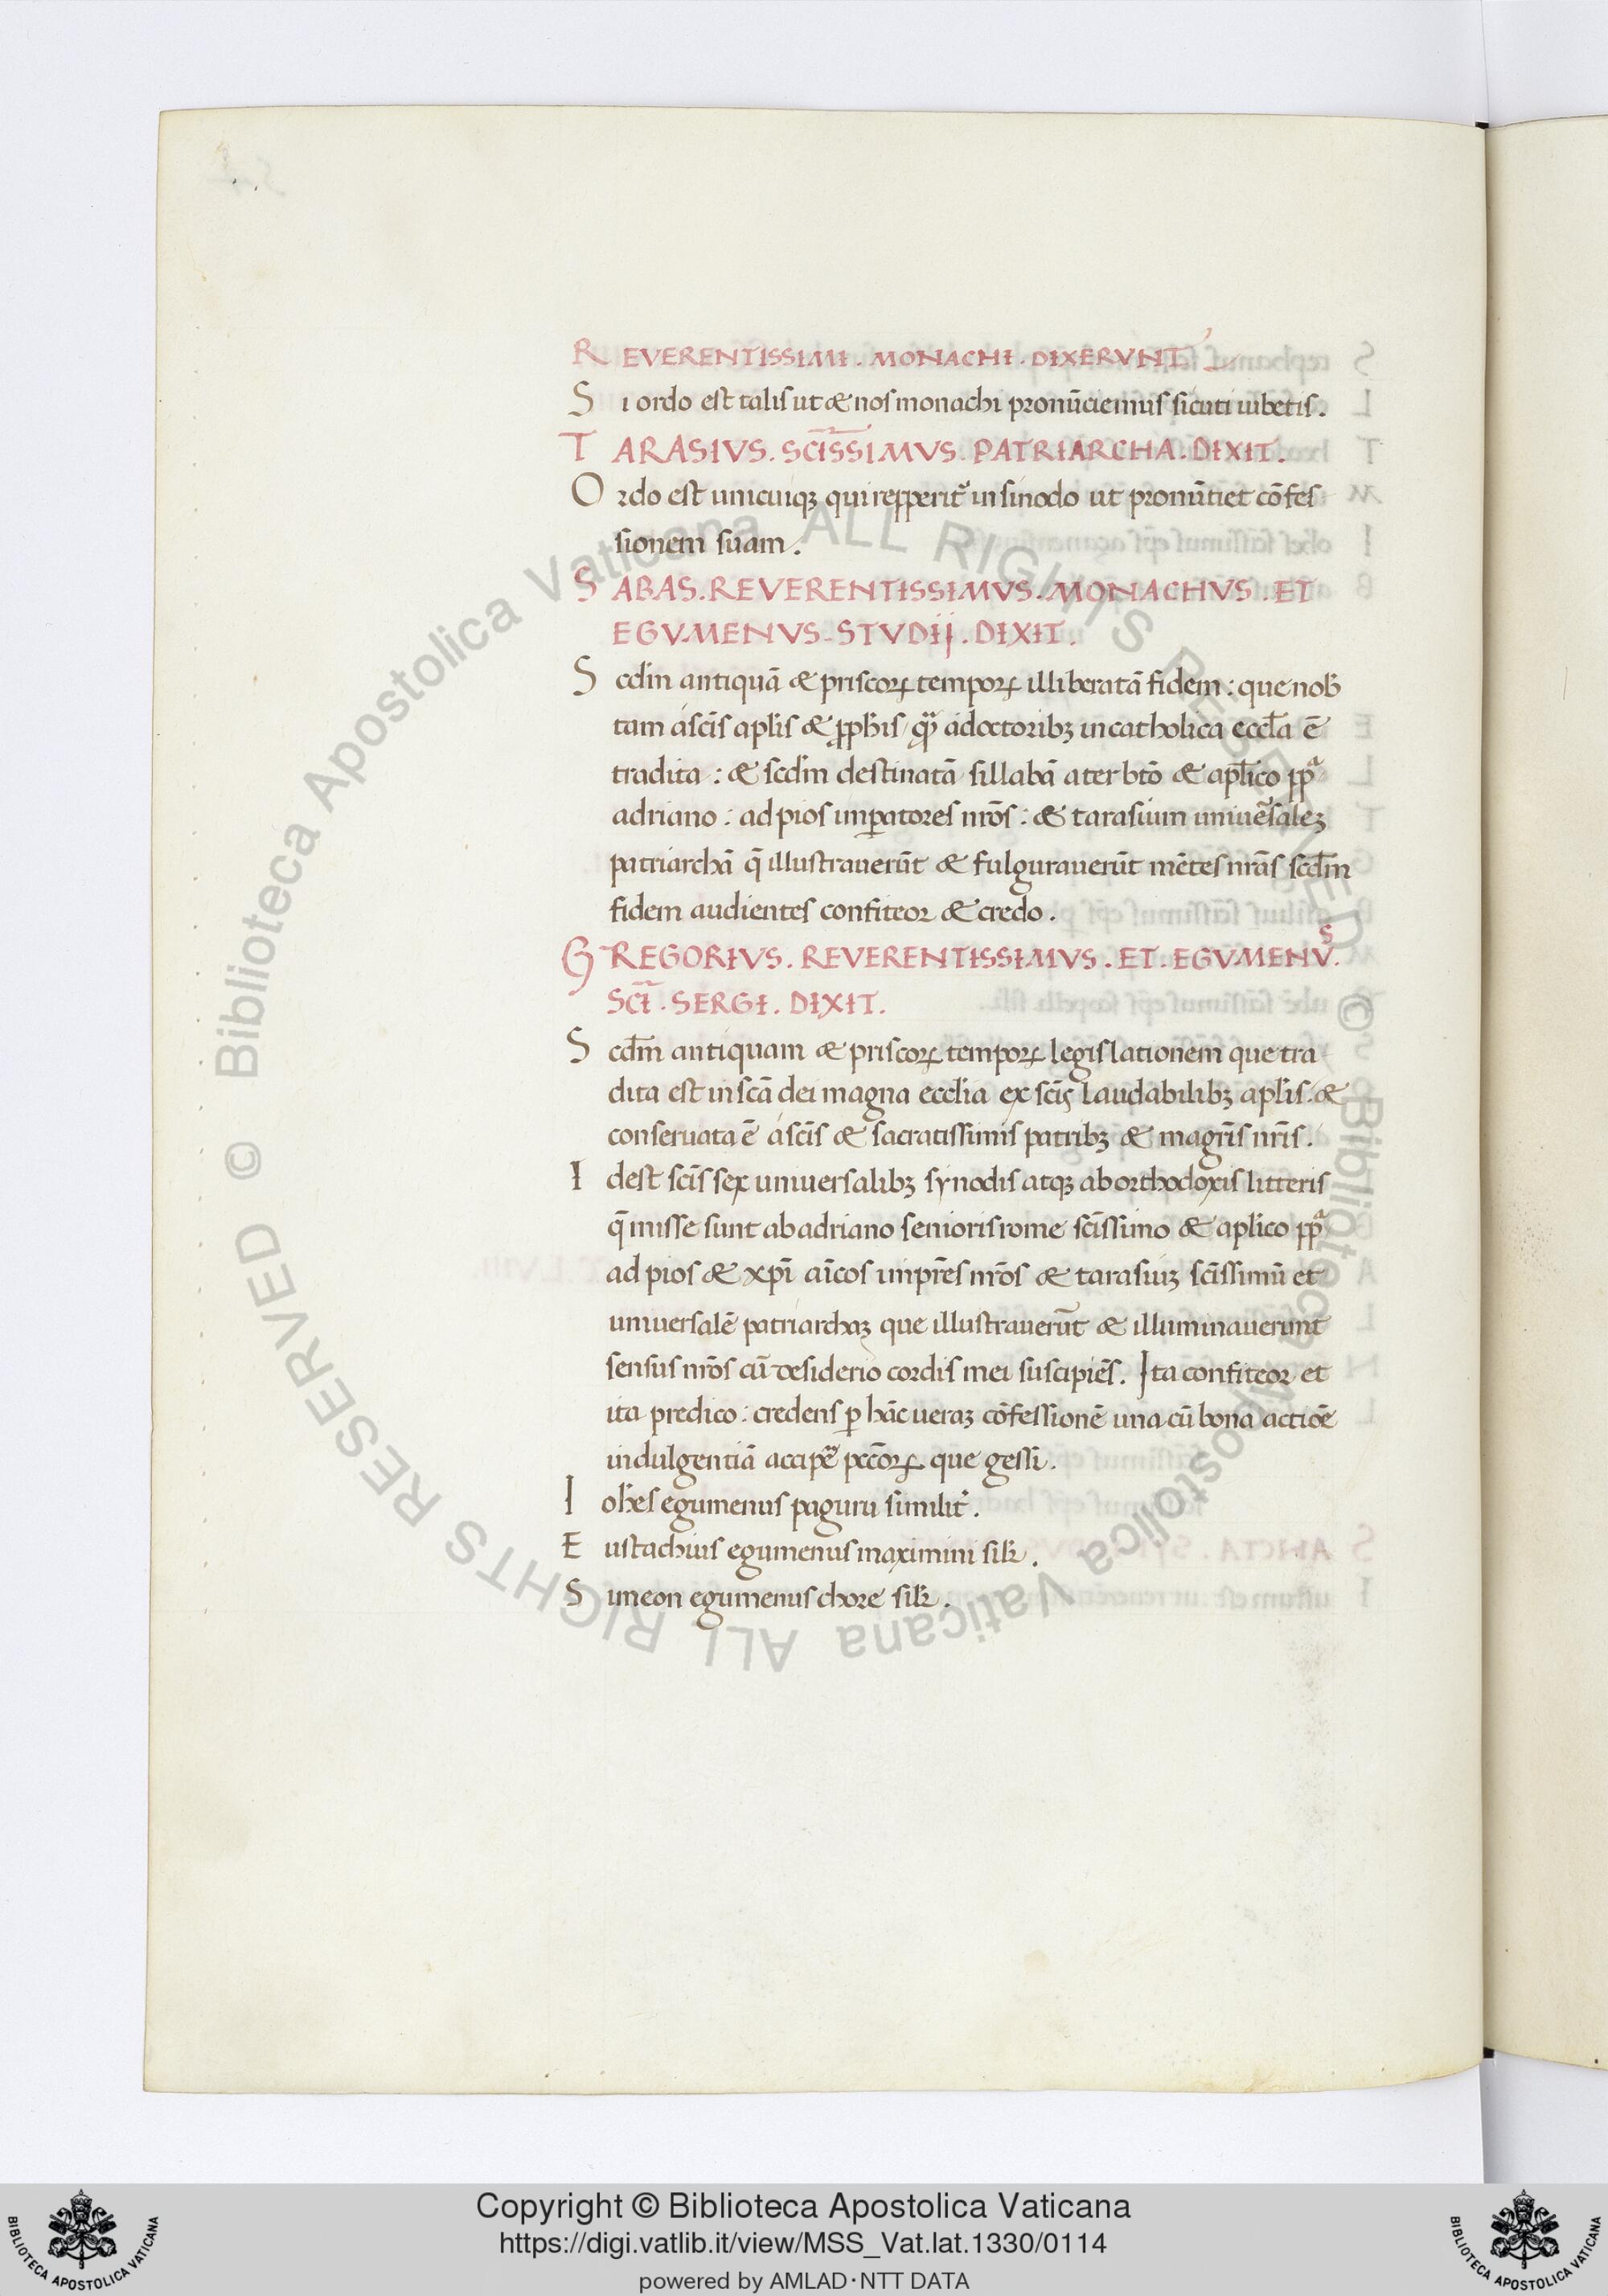 REVERENTISSIMI . MONACHI . DIXERVNT .
Si ordo est talis ut & nos monachi pronūciemus sicuti iubetis .
TARASIVS . SCĪSSIMVS . PATRIARCHA . DIXIT .
Ordo est unicuiqꝫ qui repperit᷑ in sinodo ut pronūtiet cōfes
sionem suam .
SABAS . REVERENTISSIMVS . MONACHVS . ET
EGVMENVS . STVDIJ . DIXIT .
Scdm̄ antiquā & priscorꝝ temporꝝ illiberatā fidem : que nob̄
tam a scīs aplīs & ꝓph̄is adoctoribꝫ in catholica eccl̄a ē
tradita : & scdm̄ destinatā sillabā a ter btō & apl̄ico pp̄ᵃ
adriano : ad pios imꝑatores nr̄os : & tarasium uniuēsaleꝫ
patriarchā q̄ illustrauerūt & fulgurauerūt mētes nr̄as scdm̄
fidem audientes confiteor & credo .
GREGORIVS . REVERENTISSIMVS . ET . EGVMENVS .
SCĪ . SERGI . DIXIT .
Scdm̄ antiquam & priscorꝝ temporꝝ legislationem que tra
dita est in scā dei magna ecclia ex scīs laudabilibꝫ aplīs . &
conseruata ē a scīs & sacratissimis patribꝫ & magr̄is nr̄is .
Idest scīs sex uniuersalibꝫ synodis atqꝫ ab orthodoxis litteris
q̄ misse sunt ab adriano senioris rome scīssimo & aplico pp̄ᵃ
ad pios & xpī aīcos imp̄res nr̄os & tarasiuꝫ scīssimū et
uniuersalē patriarchaꝫ que illustrauerūt & illuminauerunt
sensus nr̄os cū desiderio cordis mei suscipiēs . Ita confiteor et
ita predico : credens ꝑ hāc ueraꝫ cōfessionē una cū bona actiōe
indulgentiā accipe᷑ pccōrꝝ que gessi .
Ioh̄es egumenus paguru similit᷑ .
Eustachius egumenus maximini sił .
Simeon egumenus chore sił .
Copyright © Biblioteca Apostolica Vaticana
https://digi.vatlib.it/view/MSS_Vat.lat.1330/0114
powered by AMLAD·NTT DATA
BIBLIOTECA APOSTOLICA VATICANA
BIBLIOTECA APOSTOLICA VATICANA
© Biblioteca Apostolica Vaticana ALL RIGHTS RESERVED
© Biblioteca Apostolica Vaticana ALL RIGHTS RESERVED